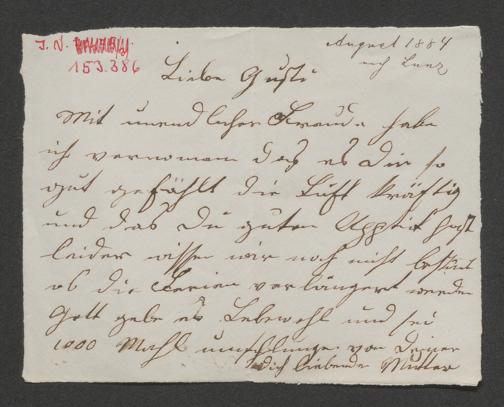 J. N.
153.386
August 1884
nach Lunz
Liebe Gusti
Mit unendlicher Freude habe
ich vernommen das es Dir so
gut gefählt die Luft kräftig
und das Du guten Appetit hast
leider wissen wir noch nicht bestimt
ob die Ferien verlängert werden
Gott gebe es Lebewohl und sei
1000 Mahl umschlungen von Deiner
Dich liebenden Mutter